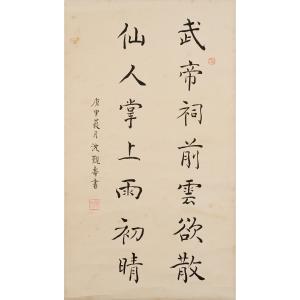 武帝祠前雲欲散
仙人掌上雨初晴
庚申荷月沈覲壽書